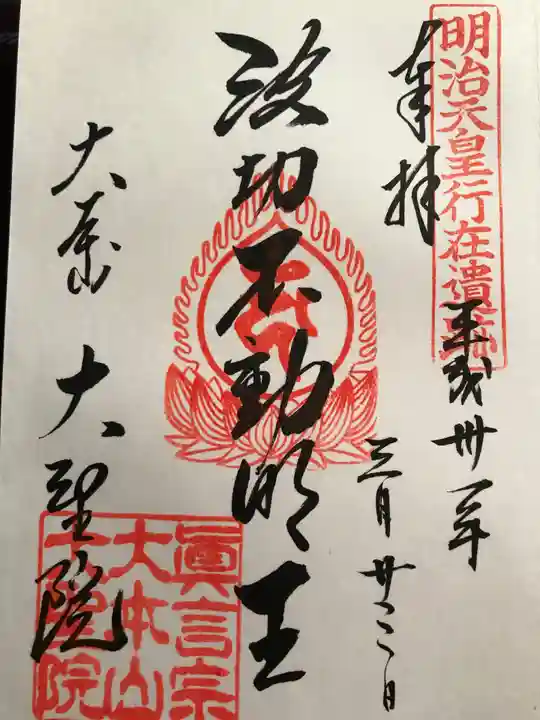 明治天皇行在遺跡
奉拝
平成卅一年
三月廿二日
波切不動明王
大本山
大聖院
眞言宗
大本山
大聖院